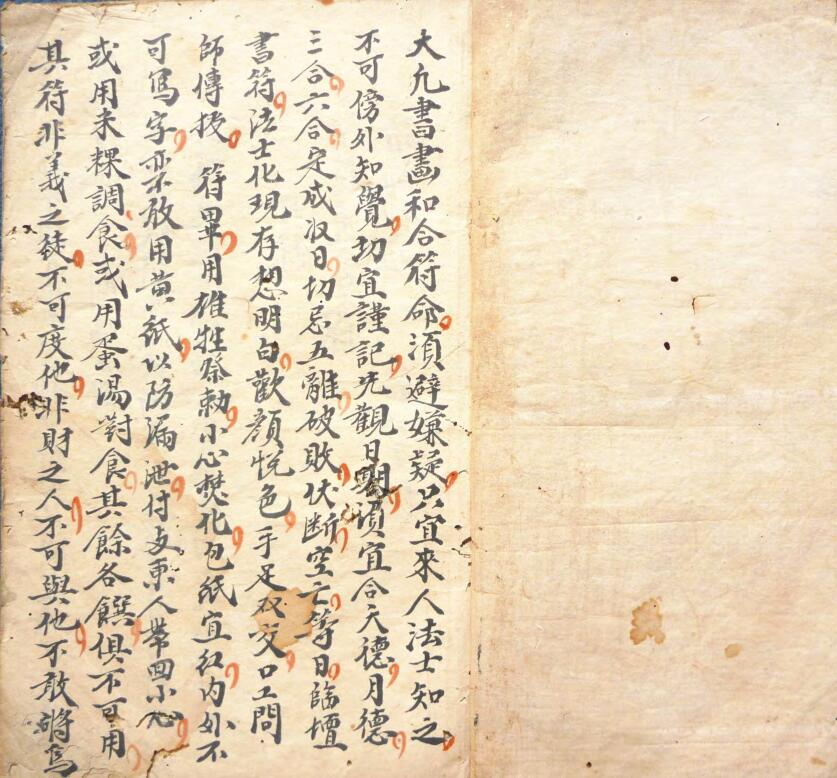 大凢書畫和合符命湏避嫌疑只宜來人法士知之
不可傍外知覺切宜謹記先觀日期湏宜合天德月德
三合六合定成收日切忌五離破敗伏断空亡等日臨壇
書符法士化現存想明白歡顔悅色手足双交口工問
師傳授符畢用雄牲祭勅小心焚化包紙宜红内外不
可寫字亦不敢用黄紙以防漏泄付与東人帶回小心
或用米粿調食或用蛋湯對食其餘各饌俱不可用
其符非義之徒不可度他非財之人不可與他不敢